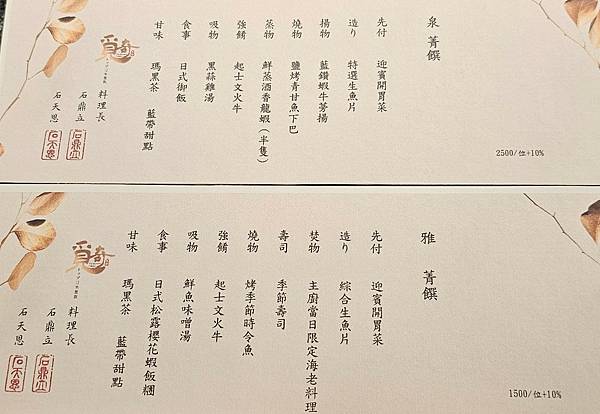 泉 菁饌
先付 迎賓開胃菜
造り 特選生魚片
揚物 藍鑽蝦牛蒡揚
燒物 鹽烤青甘魚下巴
蒸物 鮮蒸酒香龍蝦(半隻)
強餚 起士文火牛
吸物 黑蒜雞湯
食事 日式御飯
甘味 瑪黑茶 藍帶甜點
料理長
石鼎立
石天恩
覓奇
2500/位+10%
雅 菁饌
先付 迎賓開胃菜
造り 綜合生魚片
焚物 主廚當日限定海老料理
壽司 季節壽司
燒物 烤季節時令魚
強餚 起士文火牛
吸物 鮮魚味噌湯
食事 日式松露櫻花蝦飯糰
甘味 瑪黑茶 藍帶甜點
料理長
石鼎立
石天恩
覓奇
1500/位+10%